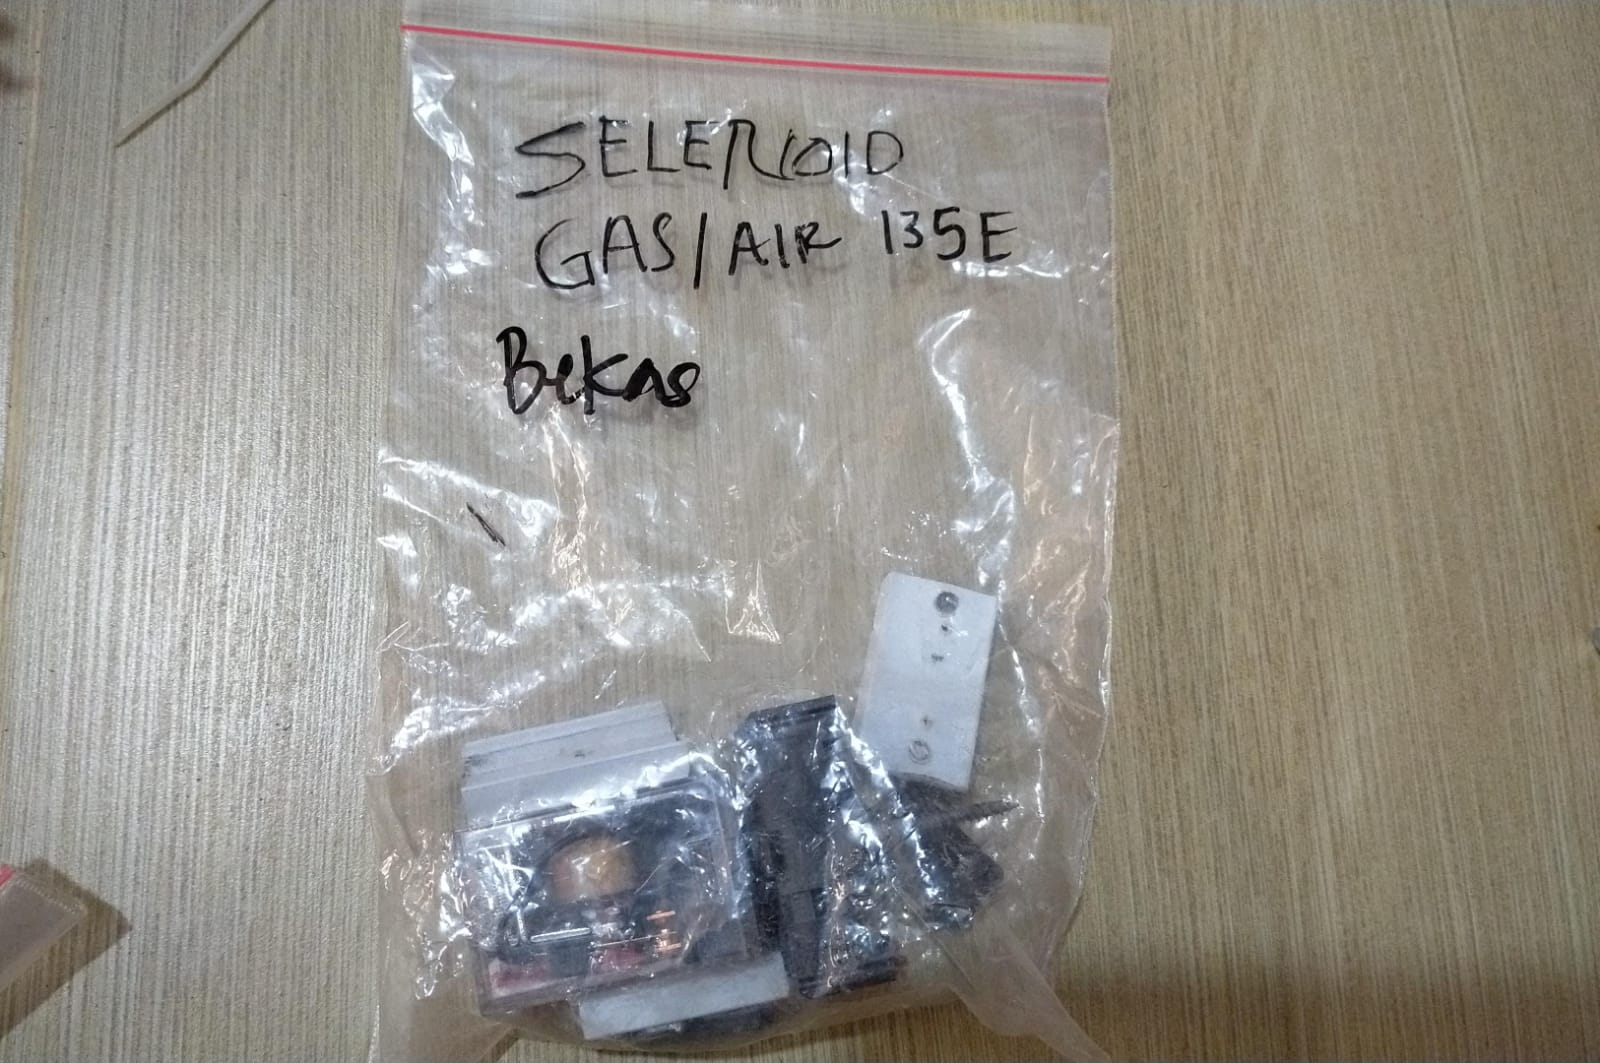 SELENOID
GAS/AIR 135E
Bekas